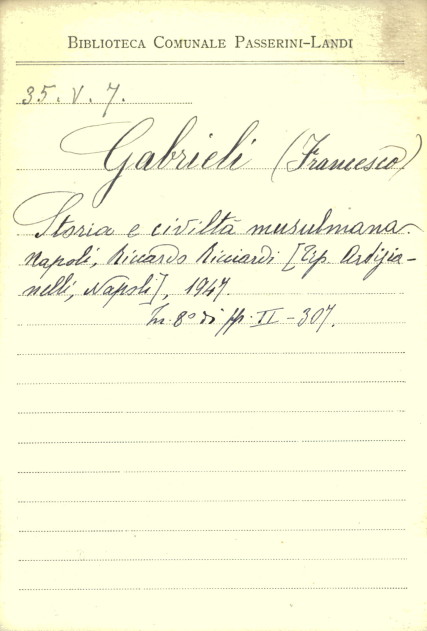 BIBLIOTECA COMUNALE PASSERINI-LANDI
35. V. 7.
Gabrieli (Francesco)
Storia e civiltà musulmana.
Napoli, Riccardo Ricciardi [Tip. Artigia-
nelli, Napoli], 1947.
In 8° di pp. II - 307.